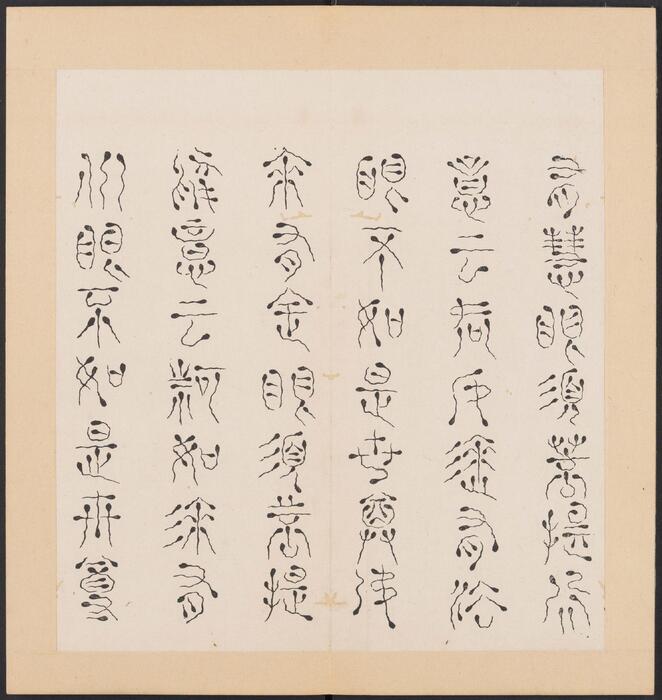 有慧眼須菩提於
意云何如來有法
眼不如是世尊如
來有法眼須菩提
於意云何如來有
佛眼不如是世尊